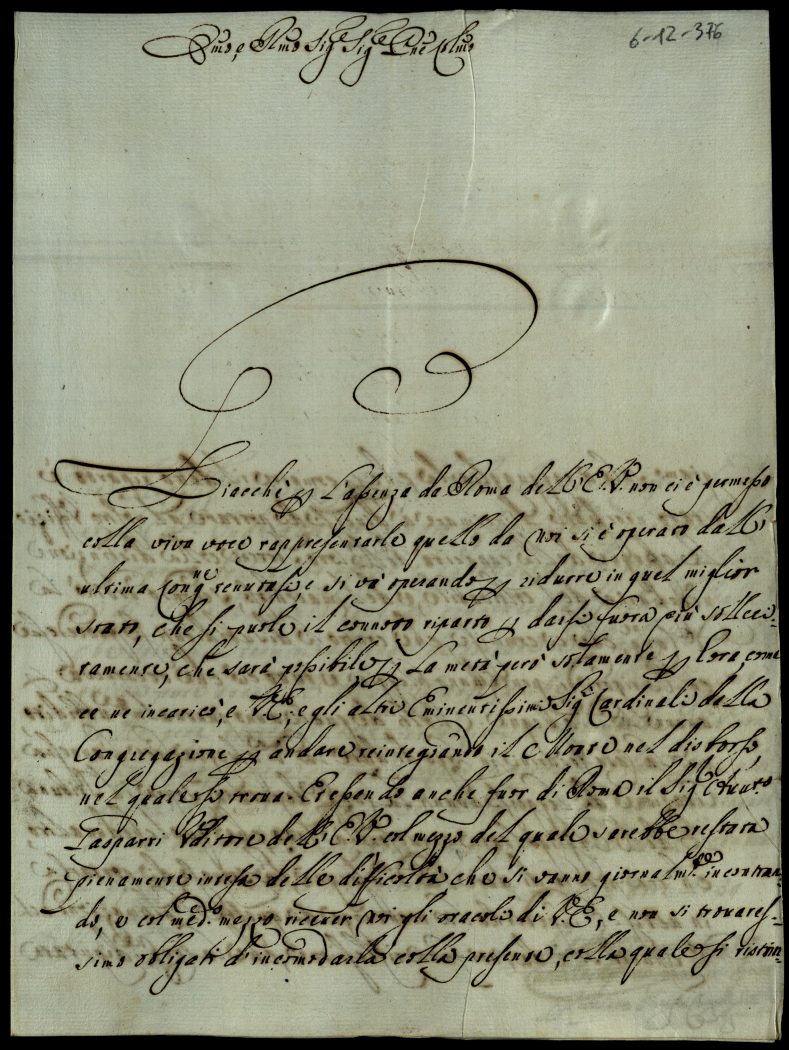 Emo, e Rmo Sig.e Sig.e Pne Colmo
6-12-376
Giacchè p l'assenza da Roma dell'E.V. non ci è permesso
colla viva voce rappresentarle quello da noi si è operato dall'
ultima Cong.ne tenutasi, e si và operando p ridurre in quel miglior
stato, che si puole il connoto riparto p darse fuora più solleci-
tamente, che sarà possibile p la metà però solamente p hora, come
ce ne incaricò, e V.E., e gli altri Eminentissimi Sig.ri Cardinali della
Congregazione p andare reintegrando il Monte nel disborso,
nel quale si trova. Et essendo anche fuor di Roma il Sig.e
Gasparri Uditore dell'E.V. col mezzo del quale sarebbe restata
pienamente intesa delle difficoltà che si vanno giornalm.te incontran-
do, e col med.o mezzo ricever noi gli oracoli di V.E., e non si trovares-
simo obligati d'incomodarla colla presente, colla quale si